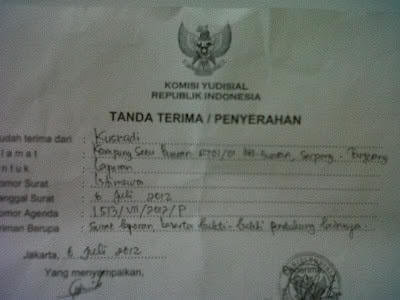 KOMISI YUDISIAL
REPUBLIK INDONESIA
TANDA TERIMA / PENYERAHAN
udah terima dari : Kusradi
lamat : Kampung RT01/01 Serpong - Tangerang
ntuk : Laporan
omor Surat : Istimewa
anggal Surat : 6 Juli 2012
omor Agenda : 1513/VII/2012/P
iriman Berupa : Surat laporan beserta bukti-bukti pendukung lainnya.
Jakarta, 6 Juli 2012
Yang menyampaikan,